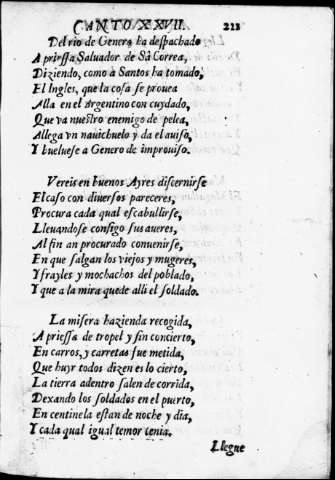 CANTO XXVII. 213
Del rio de Genero ha despachado
A priessa Saluador de Sà Correa,
Diziendo, como à Santos ha tomado,
El Ingles, que la cosa se prouea
Alla en el Argentino con cuydado,
Que va nuestro enemigo de pelea,
Allega vn nauichuelo y da el auiso,
Y bueluese a Genero de improuiso.
Vereis en buenos Ayres discernirse
El caso con diuersos pareceres,
Procura cada qual escabullirse,
Lleuandose consigo sus aueres,
Al fin an procurado conuenirse,
En que salgan los viejos y mugeres,
Y frayles y mochachos del poblado,
Y que a la mira quede alli el soldado.
La misera hazienda recogida,
A priessa de tropel y sin concierto,
En carros, y carretas fue metida,
Que huyr todos dizen es lo cierto,
La tierra adentro salen de corrida,
Dexando los soldados en el puerto,
En centinela estan de noche y dia,
Y cada qual igual temor tenia.
Llegue